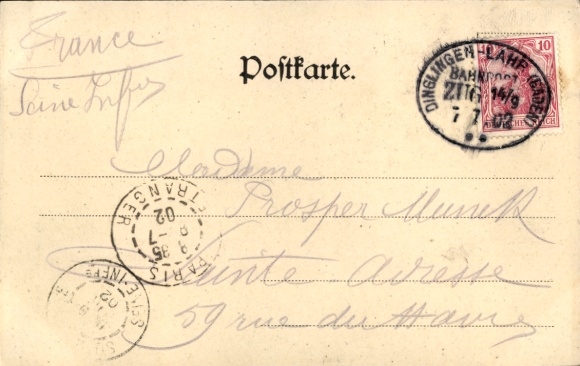 France
Seine Infre
Postkarte.
10
DINGLINGEN-LAHR (BADEN)
BAHNPOST
ZUG 14/9
7 7 02
Madame
Prosper Munck
Sainte Adresse
59 rue du Havre
PARIS ETRANGER
8 35
8 -7
02